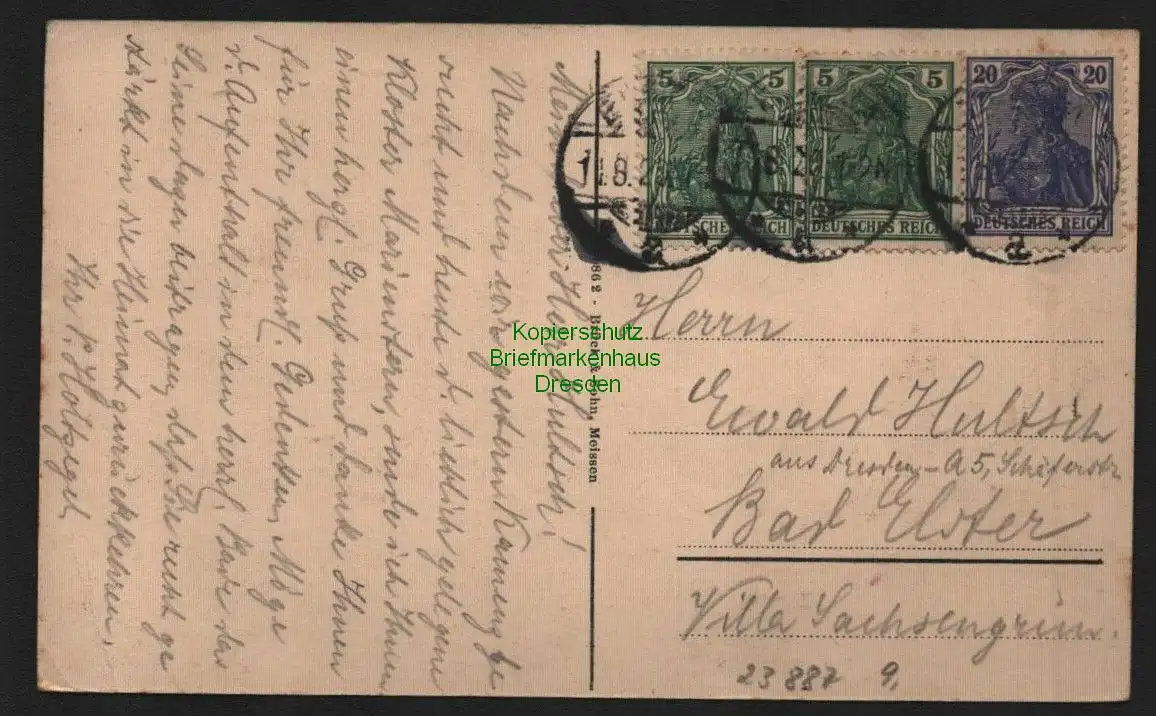 5 5
DEUTSCHES REICH
5 5
DEUTSCHES REICH
20 20
DEUTSCHES REICH
11.8.2
a
a
a
Mein lieber Herr Hultsch!
Nachdem wir gestern Kamenz be
sucht und heute d. lieblich gelegene
Kloster Marienstern, sende ich Ihnen
einen herzl. Gruß und danke Ihnen
für Ihr freundl. Gedenken. Möge
d. Aufenthalt in dem herrl. Bade das
Seine dazu beitragen, daß Sie recht ge
stärkt in die Heimat zurückkehren.
Ihr P. Holtzegel
862 - Brück & Sohn, Meissen
Kopierschutz
Briefmarkenhaus
Dresden
Herrn
Ewald Hultsch
aus Dresden-A 5, Schäferstr
Bad Elster
Villa Sachsengrün.
23 887 9,